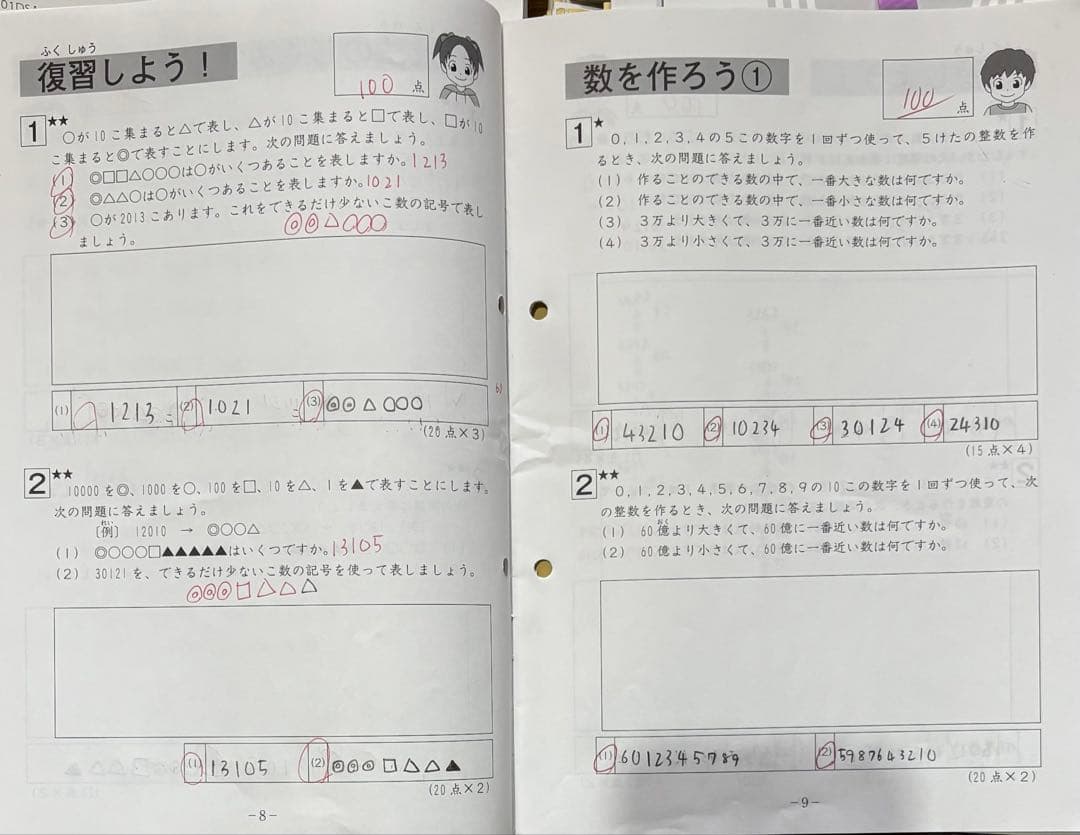 ふくしゅう
復習しよう!
100点
1★★
○が10こ集まると△で表し、△が10こ集まると□で表し、□が10
こ集まると◎で表すことにします。次の問題に答えましょう。
(1) ◎□□△○○○は○がいくつあることを表しますか。1213
(2) ◎△△○は○がいくつあることを表しますか。1021
(3) ○が2013こあります。これをできるだけ少ないこ数の記号で表し
ましょう。 ◎◎△○○○
(1) 1213 (2) 1021 (3) ◎◎△○○○
(20点×3)
2★★
10000を◎、1000を○、100を□、10を△、1を▲で表すことにします。
次の問題に答えましょう。
れい
〔例〕 12010 → ◎○○△
(1) ◎○○○□▲▲▲▲▲はいくつですか。13105
(2) 30121を、できるだけ少ないこ数の記号を使って表しましょう。
◎◎◎□△△△
(1) 13105 (2) ◎◎◎□△△▲
(20点×2)
-8-
数を作ろう①
100点
1★
0,1,2,3,4の5この数字を1回ずつ使って、5けたの整数を作
るとき、次の問題に答えましょう。
(1) 作ることのできる数の中で、一番大きな数は何ですか。
(2) 作ることのできる数の中で、一番小さな数は何ですか。
(3) 3万より大きくて、3万に一番近い数は何ですか。
(4) 3万より小さくて、3万に一番近い数は何ですか。
(1) 43210 (2) 10234 (3) 30124 (4) 24310
(15点×4)
2★★
0,1,2,3,4,5,6,7,8,9の10この数字を1回ずつ使って、次
の整数を作るとき、次の問題に答えましょう。
おく
(1) 60億より大きくて、60億に一番近い数は何ですか。
(2) 60億より小さくて、60億に一番近い数は何ですか。
(1) 6012345789 (2) 5987643210
(20点×2)
-9-